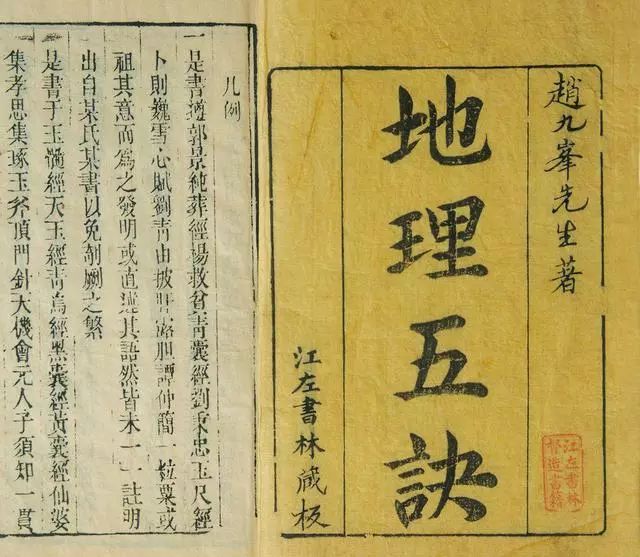 趙九峯先生著
地理五訣
江左書林蔵板
江左書林
督造書籍
凡例
一是書遵郭景純葬經楊救貧青囊經劉秉忠玉尺經
卜則巍雪心賦劉青田披肝露胆譚仲簡一粒粟或
祖其意而為之發明或直述其語然皆未一一註明
出自某氏某書以免剞劂之繁
是書于玉髓經天玉經青烏經黑囊經黃囊經仙婆
集孝思集琢玉斧頂門針天機會元人子須知一貫